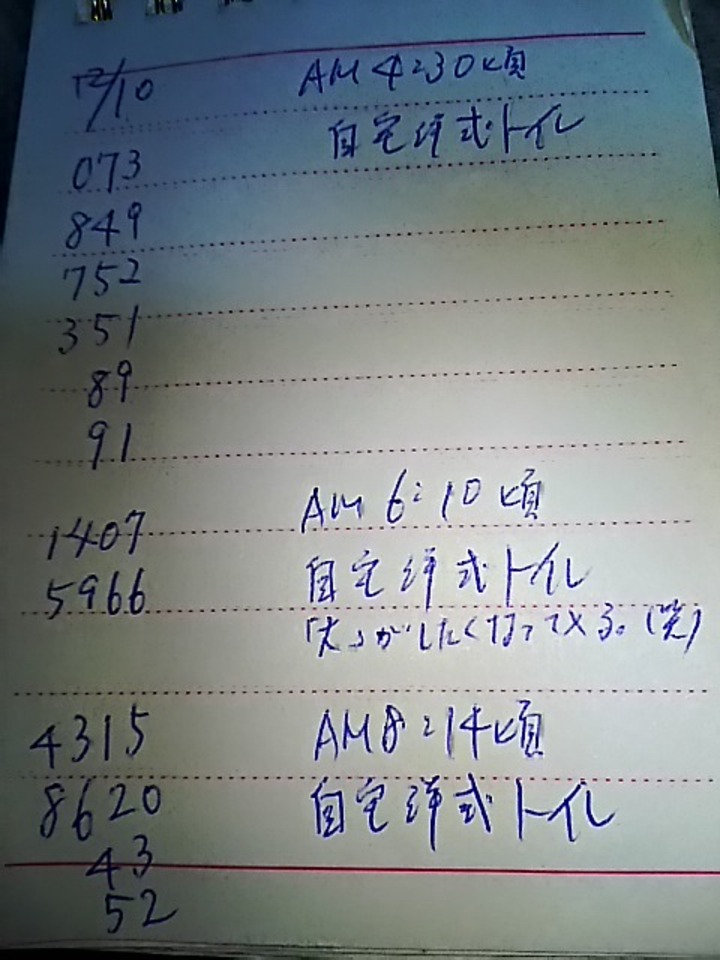 12/10 AM 4:30頃
自宅洋式トイレ
073
849
752
351
89
91
1407 AM 6:10頃
5966 自宅洋式トイレ
「大」がしたくなってくる。(笑)
4315 AM8:14頃
8620 自宅洋式トイレ
43
52